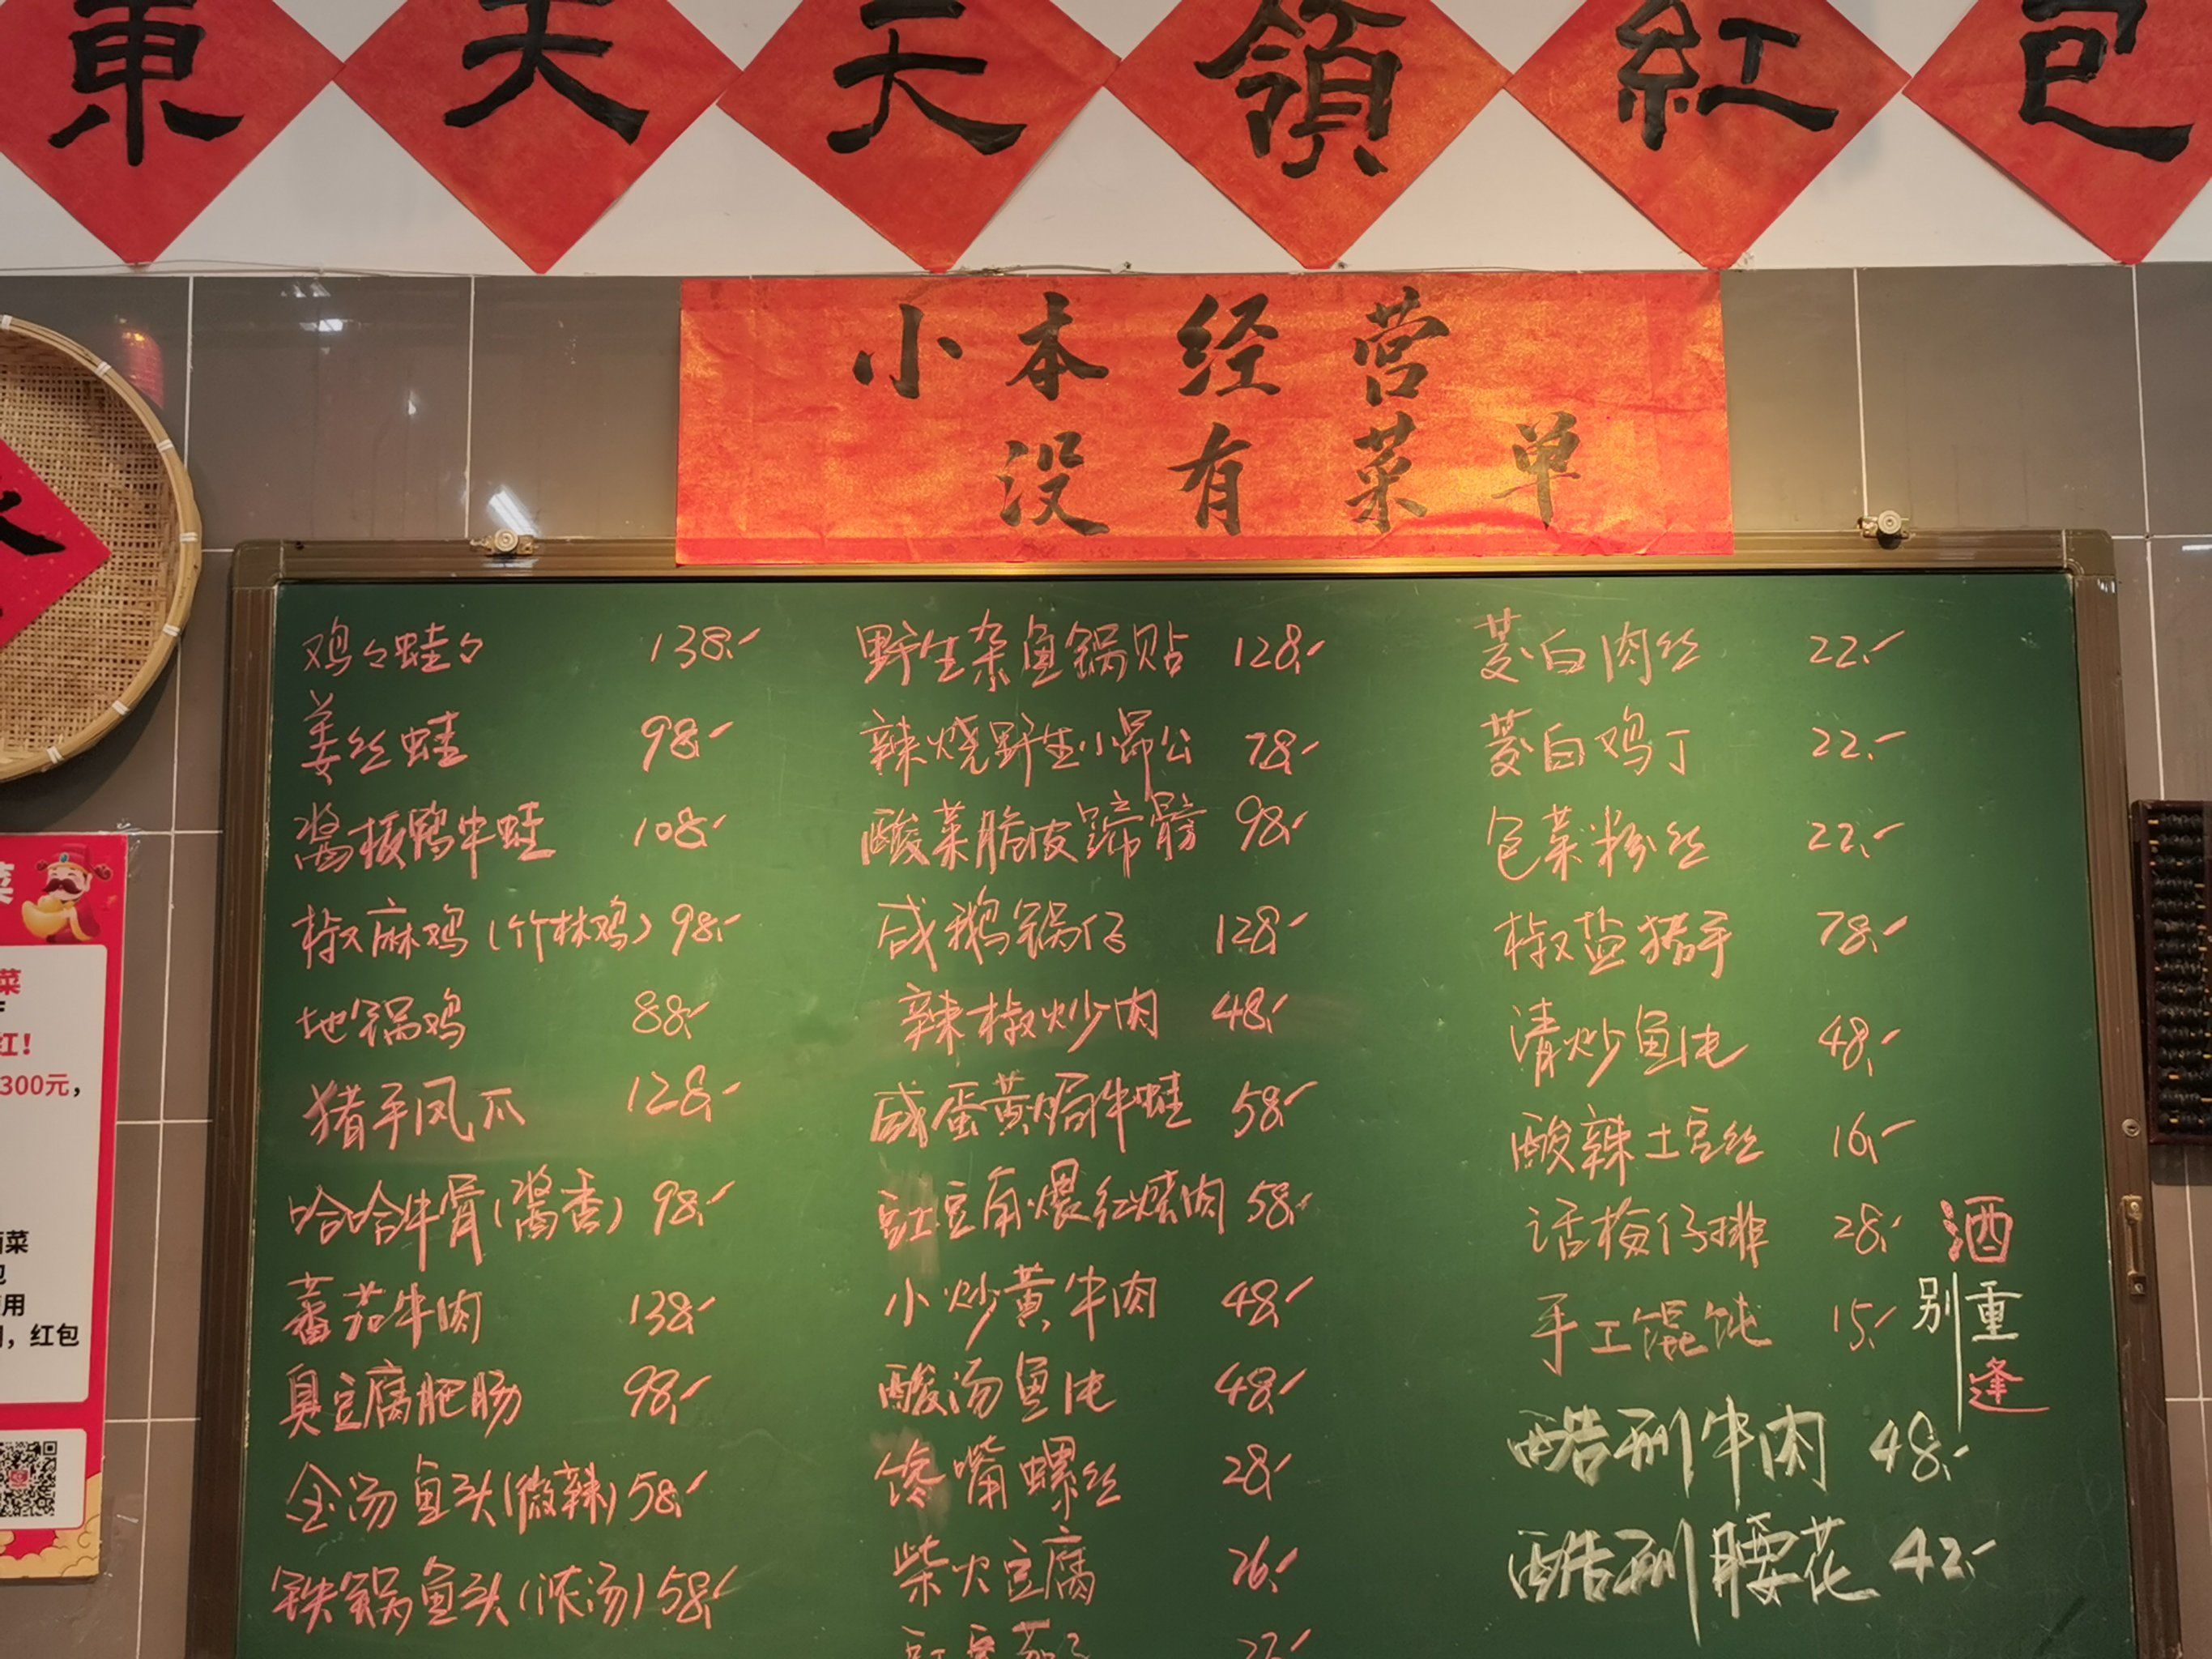 東天天領紅包
小本经营
没有菜单
鸡々蛙々 138.-
姜丝蛙 98.-
酱板鸭牛蛙 108.-
椒麻鸡(竹林鸡) 98.-
地锅鸡 88.-
猪手凤爪 128.-
哈哈牛骨(酱香) 98.-
蕃茄牛肉 138.-
臭豆腐肥肠 98.-
金汤鱼头(微辣) 58.-
铁锅鱼头(浓汤) 58.-
野生杂鱼锅贴 128.-
辣烧野生小昂公 78.-
酸菜脆皮蹄膀 98.-
咸鹅锅仔 128.-
辣椒炒肉 48.-
咸蛋黄焗牛蛙 58.-
豇豆角煨红烧肉 58.-
小炒黄牛肉 48.-
酸汤鱼肫 48.-
馋嘴螺丝 28.-
柴火豆腐 26.-
茭白肉丝 22.-
茭白鸡丁 22.-
包菜粉丝 22.-
椒盐猪手 78.-
清炒鱼肫 48.-
酸辣土豆丝 16.-
话梅仔排 28.-
手工馄饨 15.-
酷刑牛肉 48.-
酷刑腰花 42.-
酒
别重
逢
菜
红!
300元,
菜
用
,红包